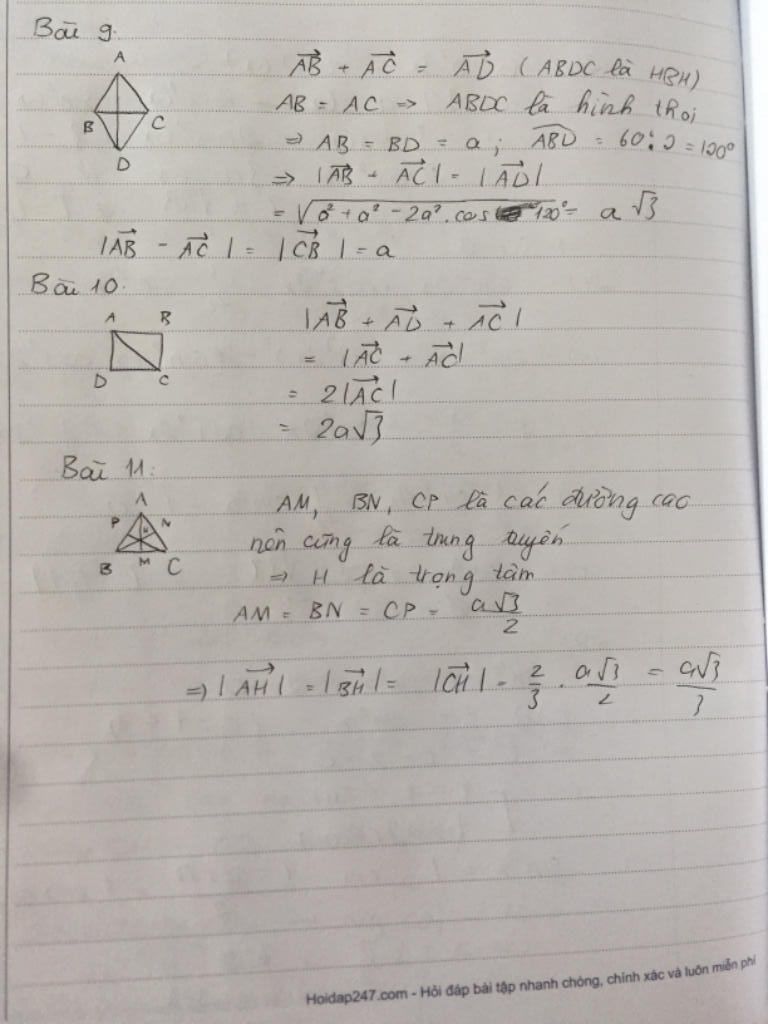 Bài 9.
A
B
C
D
$\overrightarrow{AB} + \overrightarrow{AC} = \overrightarrow{AD}$ (ABDC là HBH)
AB = AC => ABDC là hình thoi
=> AB = BD = a ; $\widehat{ABD}$ = 60 : 2 = 120°
=> $|\overrightarrow{AB} + \overrightarrow{AC}| = |\overrightarrow{AD}|$
$= \sqrt{a^2 + a^2 - 2a^2 . cos 120°} = a\sqrt{3}$
$|\overrightarrow{AB} - \overrightarrow{AC}| = |\overrightarrow{CB}| = a$
Bài 10.
A B
D C
$|\overrightarrow{AB} + \overrightarrow{AD} + \overrightarrow{AC}|$
$= |\overrightarrow{AC} + \overrightarrow{AC}|$
$= 2|\overrightarrow{AC}|$
$= 2a\sqrt{3}$
Bài 11:
A
P H N
B M C
AM, BN, CP là các đường cao
nên cũng là trung tuyến
=> H là trọng tâm
$AM = BN = CP = \frac{a\sqrt{3}}{2}$
$=> |\overrightarrow{AH}| = |\overrightarrow{BH}| = |\overrightarrow{CH}| = \frac{2}{3} . \frac{a\sqrt{3}}{2} = \frac{a\sqrt{3}}{3}$
Hoidap247.com - Hỏi đáp bài tập nhanh chóng, chính xác và luôn miễn phí